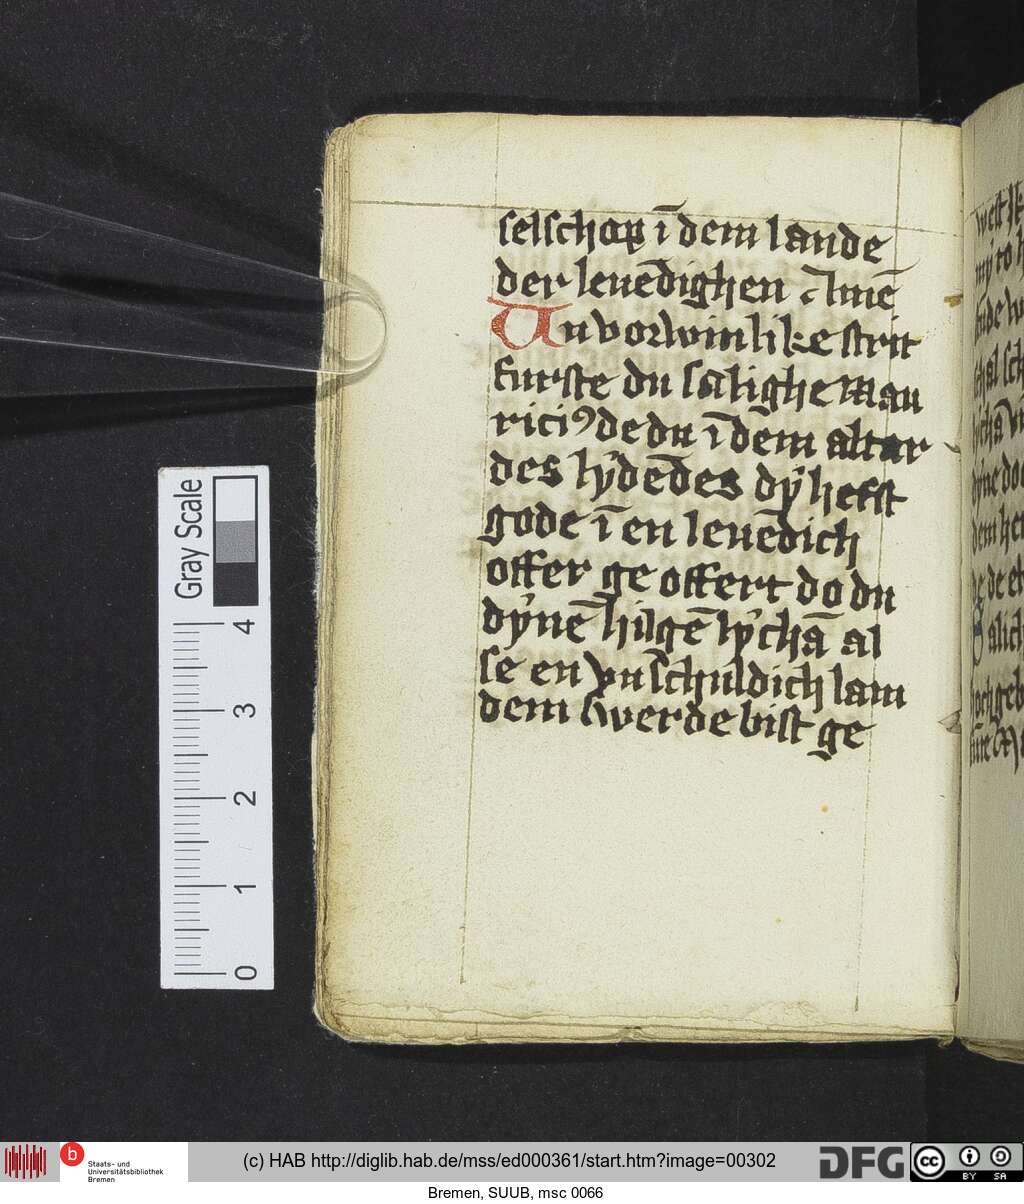 selschop ī dem lande
der leuēdighen Amē
Vn vorwinlike strit
furste du salighe Mau
riciꝰ de du ī dem altar
des lydēdes dy hefst
gode ī en leuēdich
offer ge offert do du
dynē hilgē lychā al
se en vnschuldich lam
dem swerde bist ge
Gray Scale
4
3
2
1
0
b
Staats- und
Universitätsbibliothek
Bremen
(c) HAB http://diglib.hab.de/mss/ed000361/start.htm?image=00302
DFG
cc BY SA
Bremen, SUUB, msc 0066